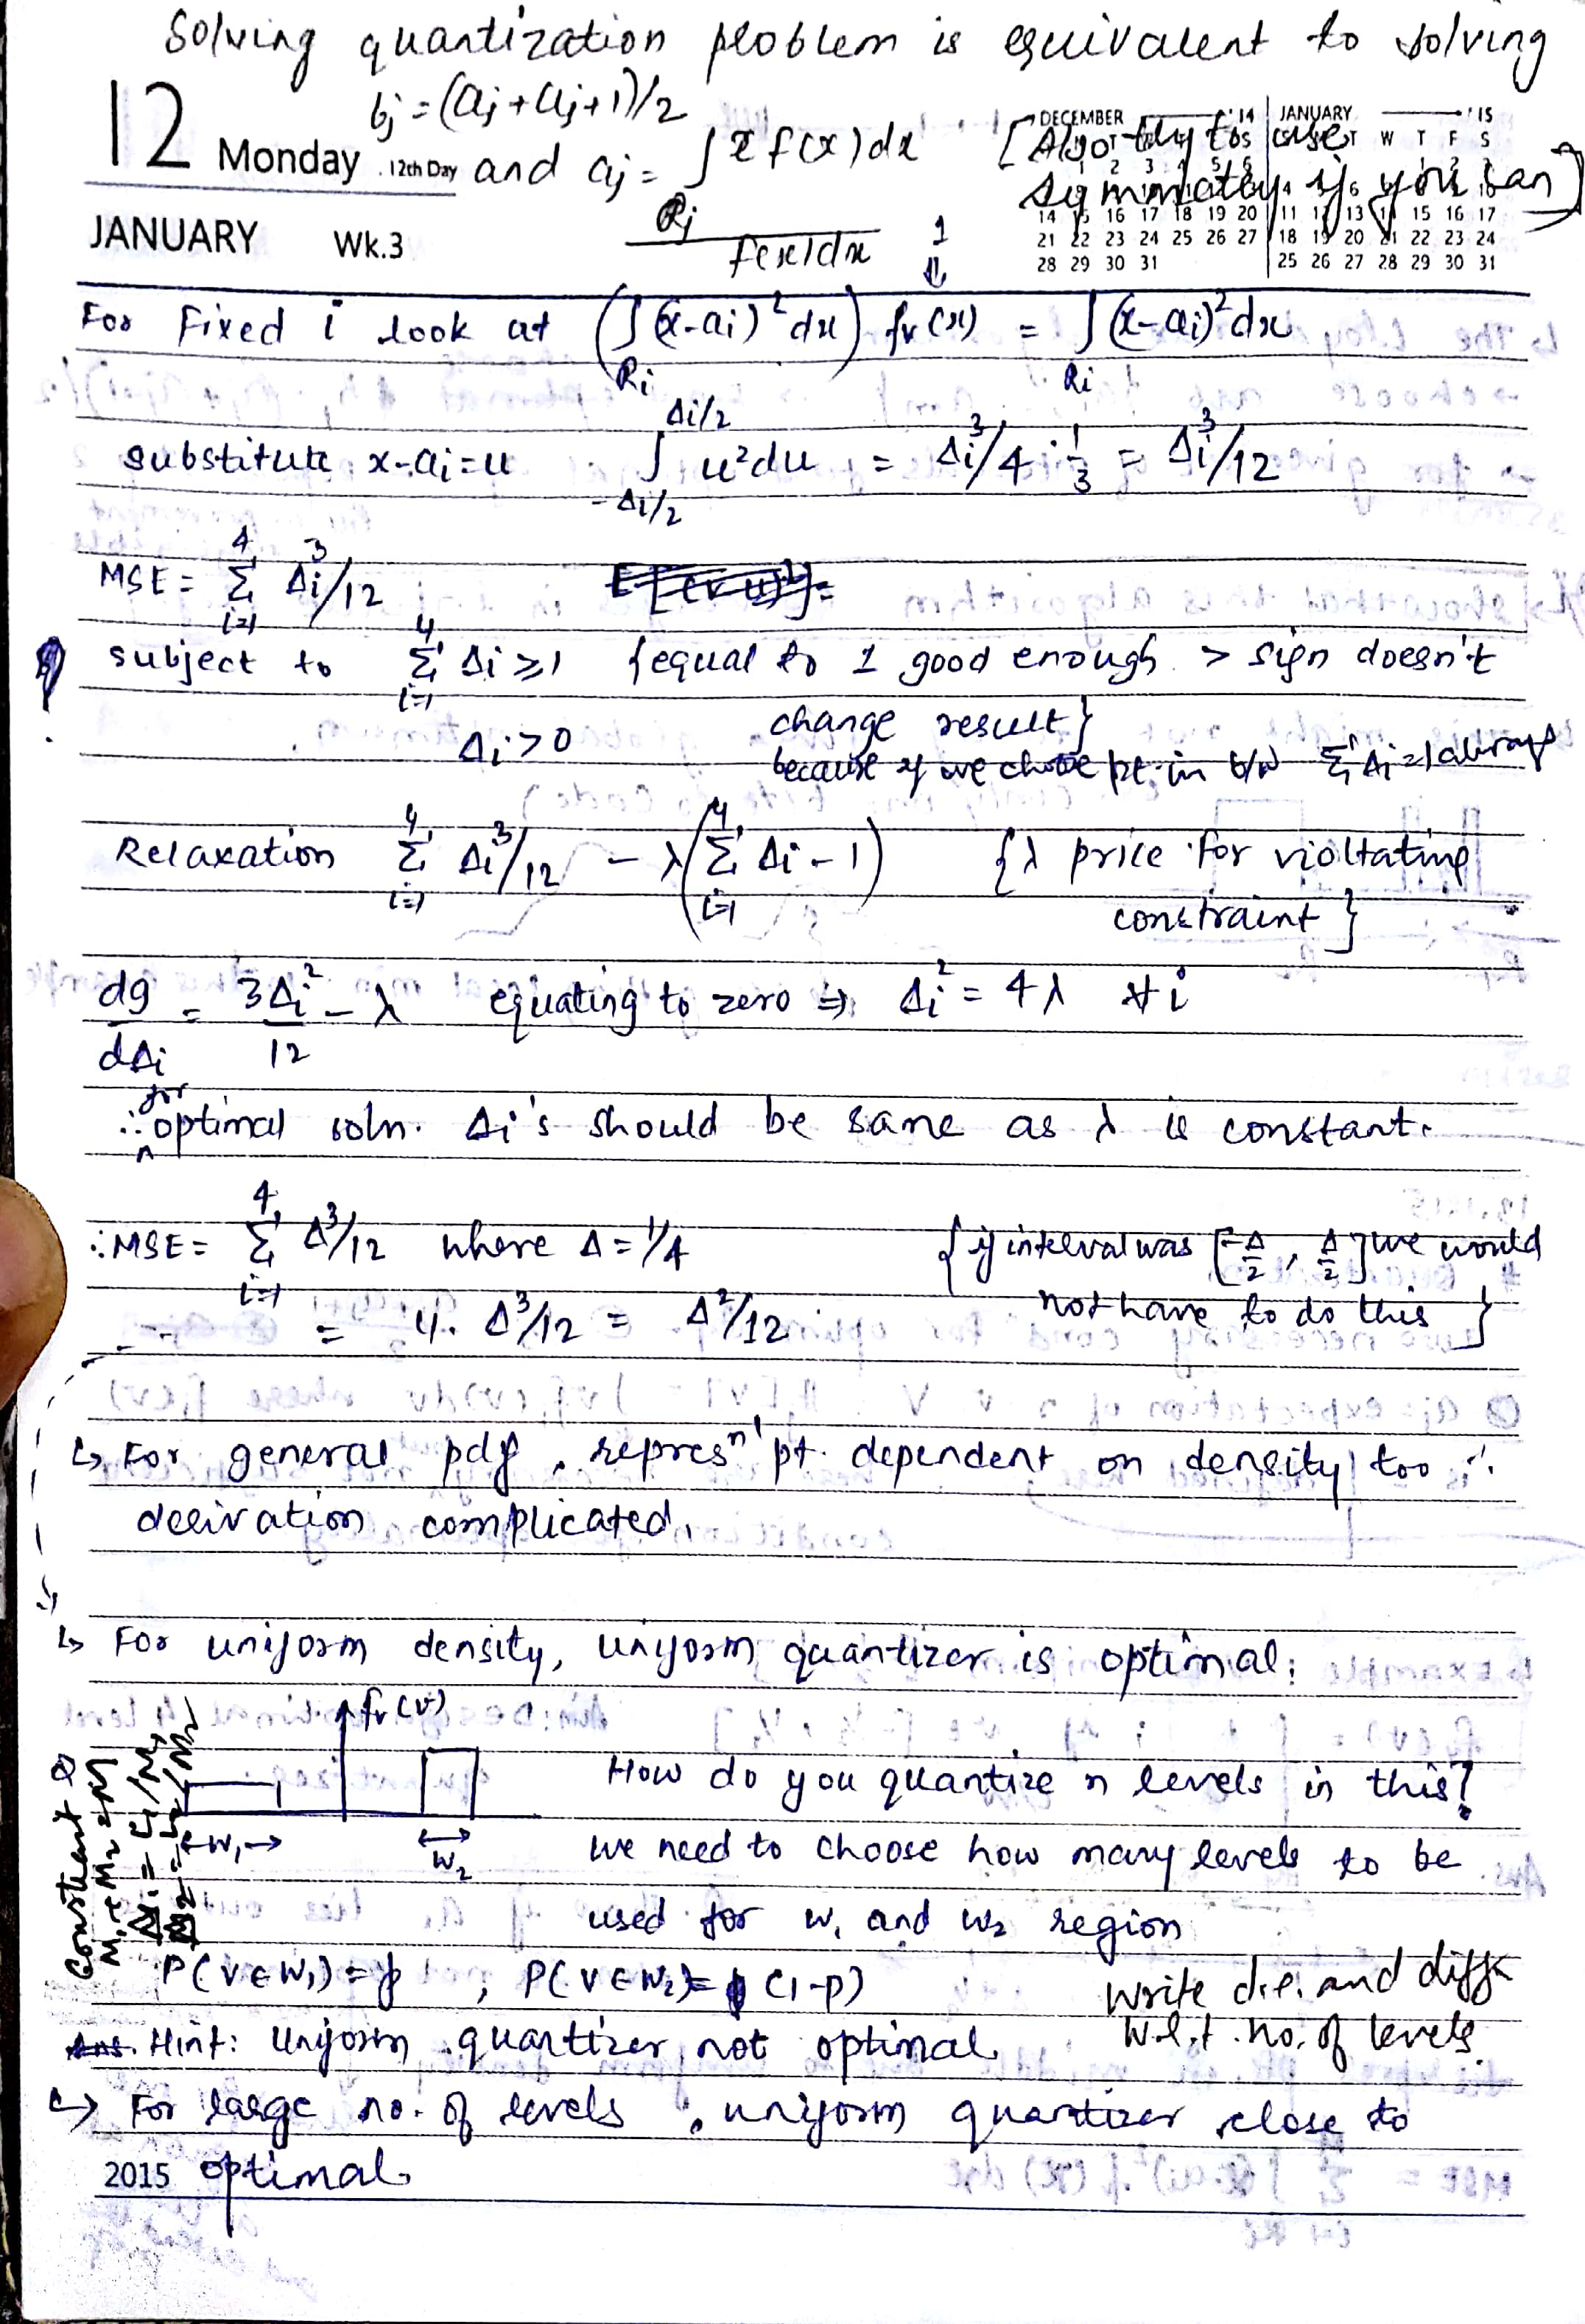 Solving quantization problem is equivalent to solving
bj = (aj + aj+1)/2
12 Monday 12th Day and aj = ∫ x f(x) dx [Also try to use
Rj symmetry if you can]
f(x)dx
JANUARY Wk.3
DECEMBER '14 JANUARY '15
W T F S
14 15 16 17 18 19 20 11 12 13 14 15 16 17
21 22 23 24 25 26 27 18 19 20 21 22 23 24
28 29 30 31 25 26 27 28 29 30 31
1
⇓
For Fixed i look at (∫ (x-ai)² dx) fv(x) = ∫ (x-ai)² dx
Ri Ri
substitute x-ai = u ∫ u² du = Δi³/4 · 1/3 = Δi³/12
Δi/2
-Δi/2
MSE = Σ Δi³/12
4
i=1
subject to Σ Δi ≥ 1 {equal to 1 good enough > sign doesn't
4
i=1
Δi > 0 change result}
because if we chose pt. in b/w Σ Δi = 1 always
Relaxation Σ Δi³/12 - λ(Σ Δi - 1) {λ price for violtating
4 4
i=1 i=1
constraint}
dg/dΔi = 3Δi²/12 - λ equating to zero ⇒ Δi² = 4λ ∀i
∴ for optimal soln. Δi's should be same as λ is constant.
∴ MSE = Σ Δ³/12 where Δ = 1/4 {if interval was [-Δ/2, Δ/2] we would
4
i=1
= 4. Δ³/12 = Δ²/12 not have to do this}
↳ For general pdf, represⁿ pt. dependent on density too ∴
derivation complicated.
↳ For uniform density, uniform quantizer is optimal.
fv(v)
How do you quantize n levels in this?
←w1→ w2 we need to choose how many levels to be
used for w1 and w2 region
Constraint
M1 + M2 = M
Δ1 = L1/M1
Δ2 = L2/M2
P(V∈W1) = p , P(V∈W2) = (1-p)
write d.e. and diff.
w.r.t. no. of levels.
Hint: Uniform quantizer not optimal
↳ For large no. of levels, uniform quantizer close to
2015 optimal.